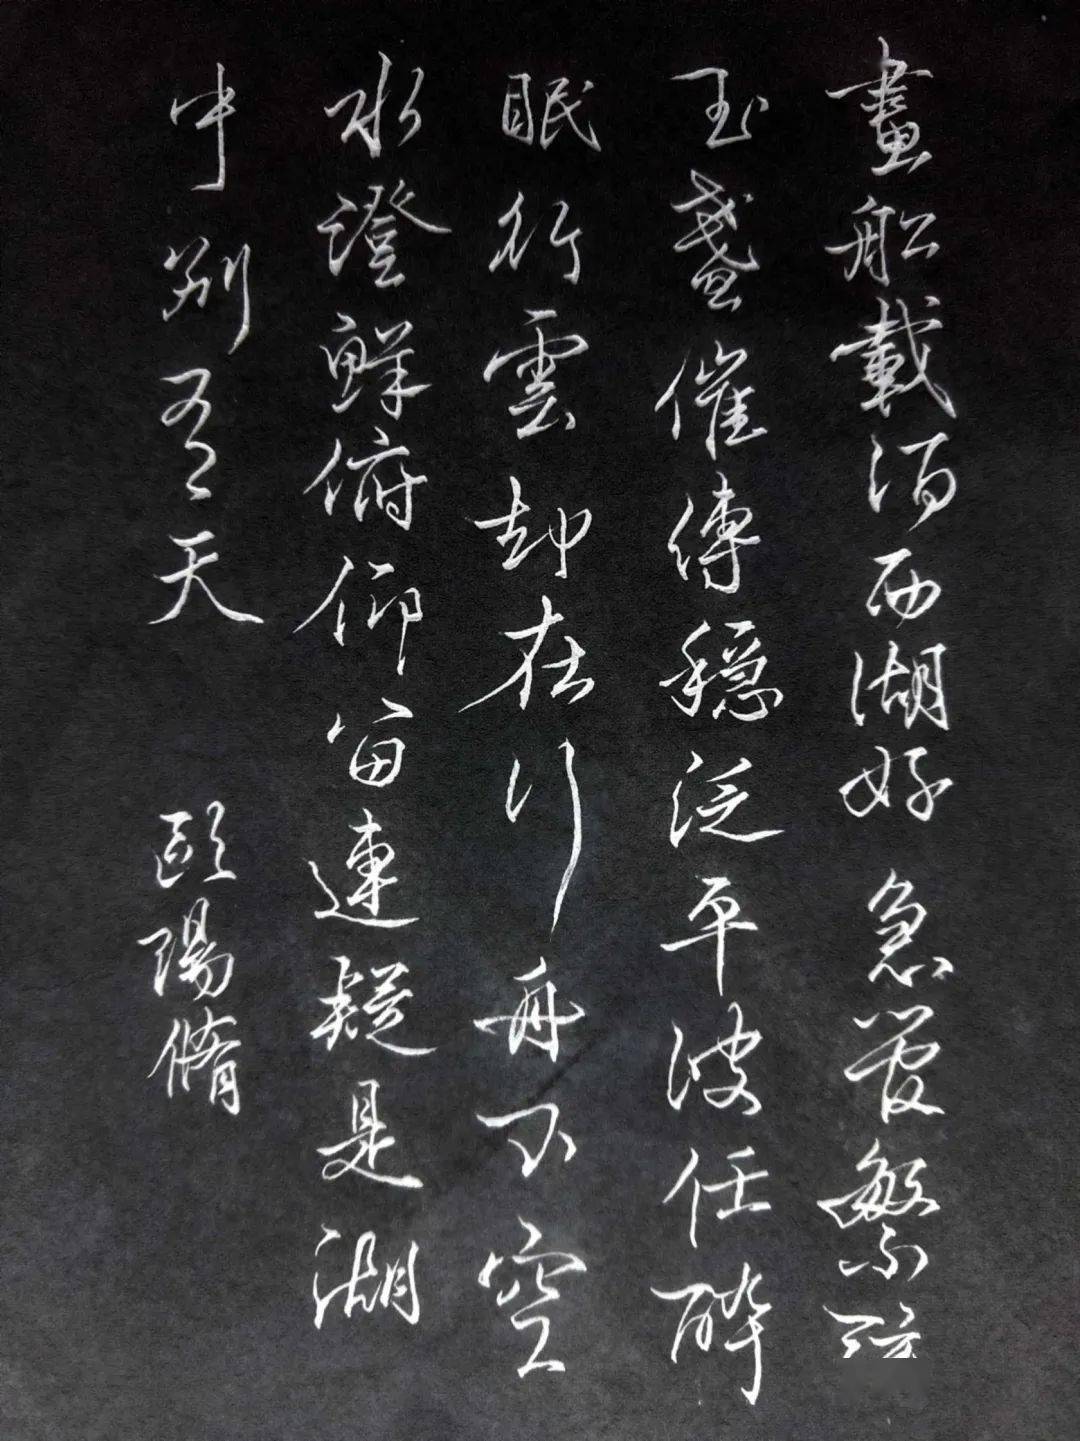 畫船載酒西湖好急管繁
玉盞催傳穩泛平波任醉
眠行雲却在行舟下空
水澄鮮俯仰留連疑是湖
中別有天
歐陽脩